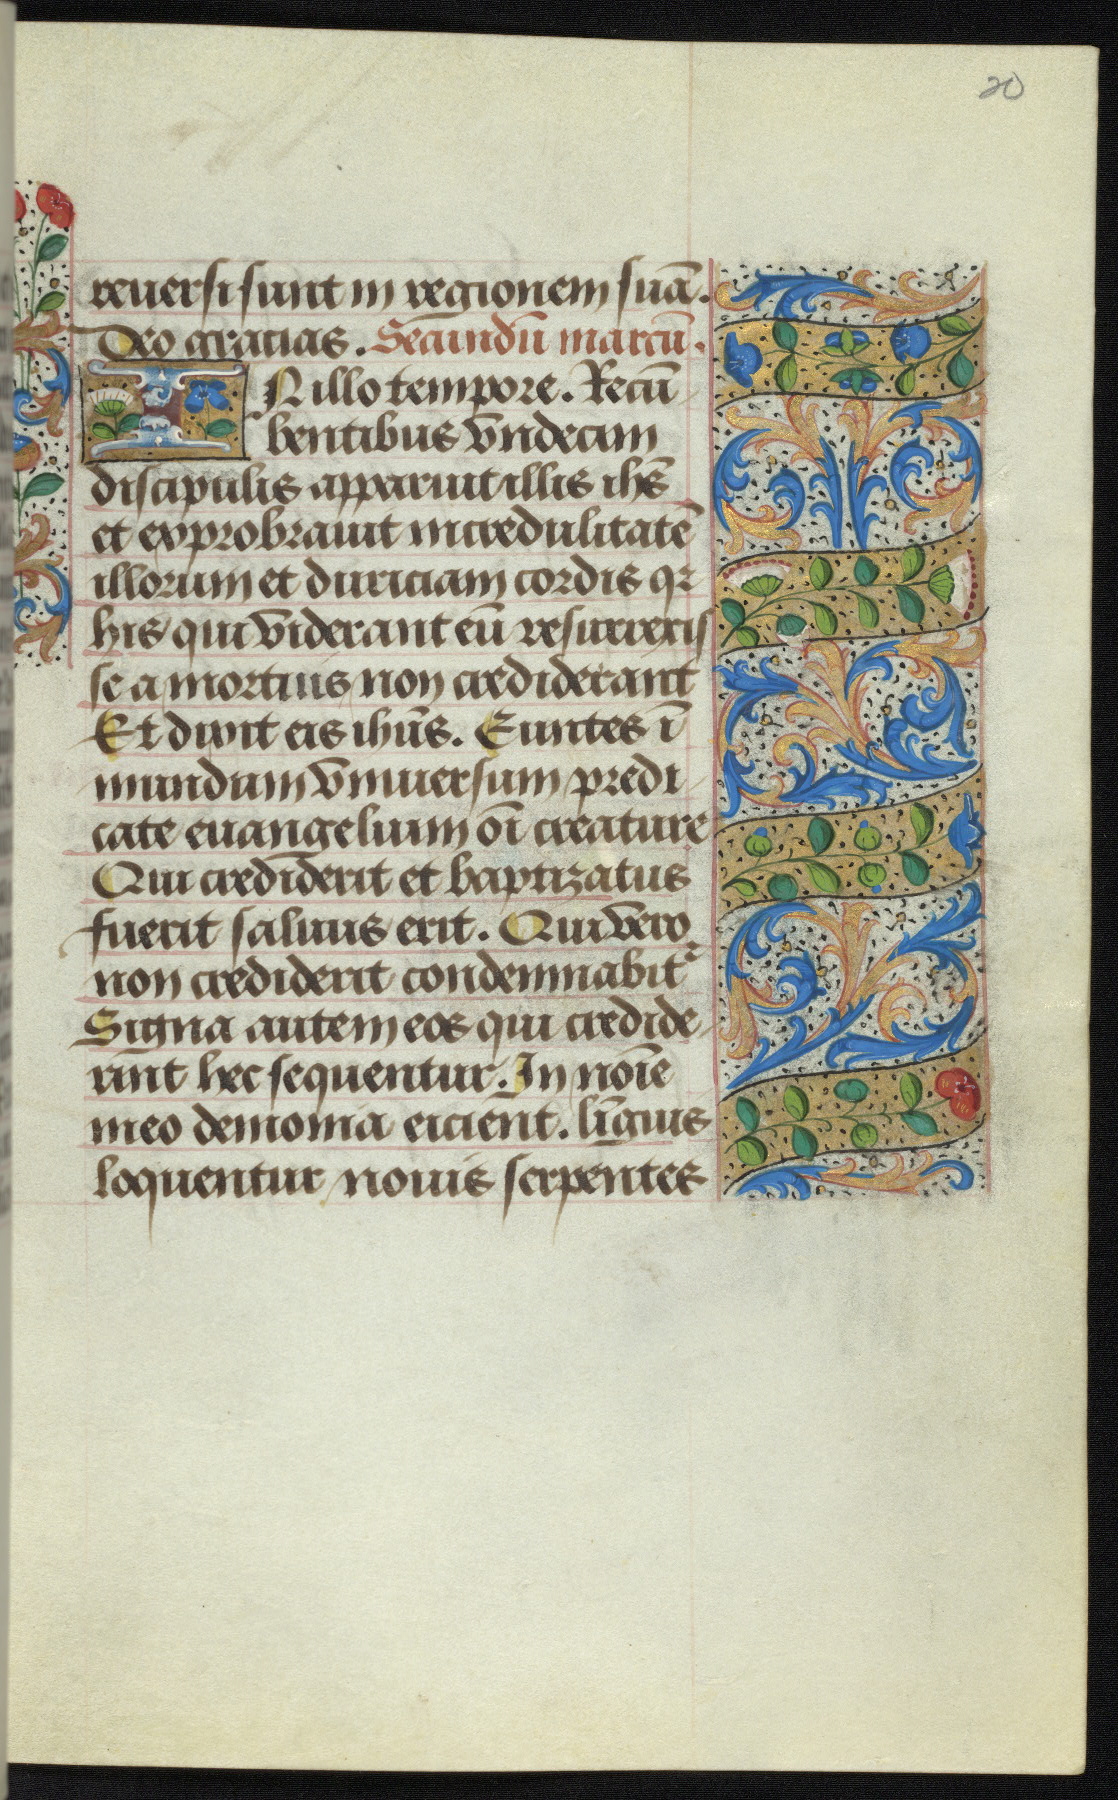 20
reuersi sunt in regionem suā.
Deo gracias. Secundū marcū.
IN illo tempore. Recū
bentibus vndecim
discipulis apparuit illis ihs̄
et exprobrauit incredulitatē
illorum et duriciam cordis qr
his qui viderant eū resurrexis
se a mortuis non crediderant
Et dixit eis ihūs. Euntes ī
mundum vniuersum predi
cate euangelium oī creature
Qui crediderit et baptizatus
fuerit saluus erit. Qui vero
non crediderit condemnabit᷑
Signa autem eos qui credide
rint hec sequentur. In noīe
meo demonia eicient. linguis
loquentur nouis serpentes